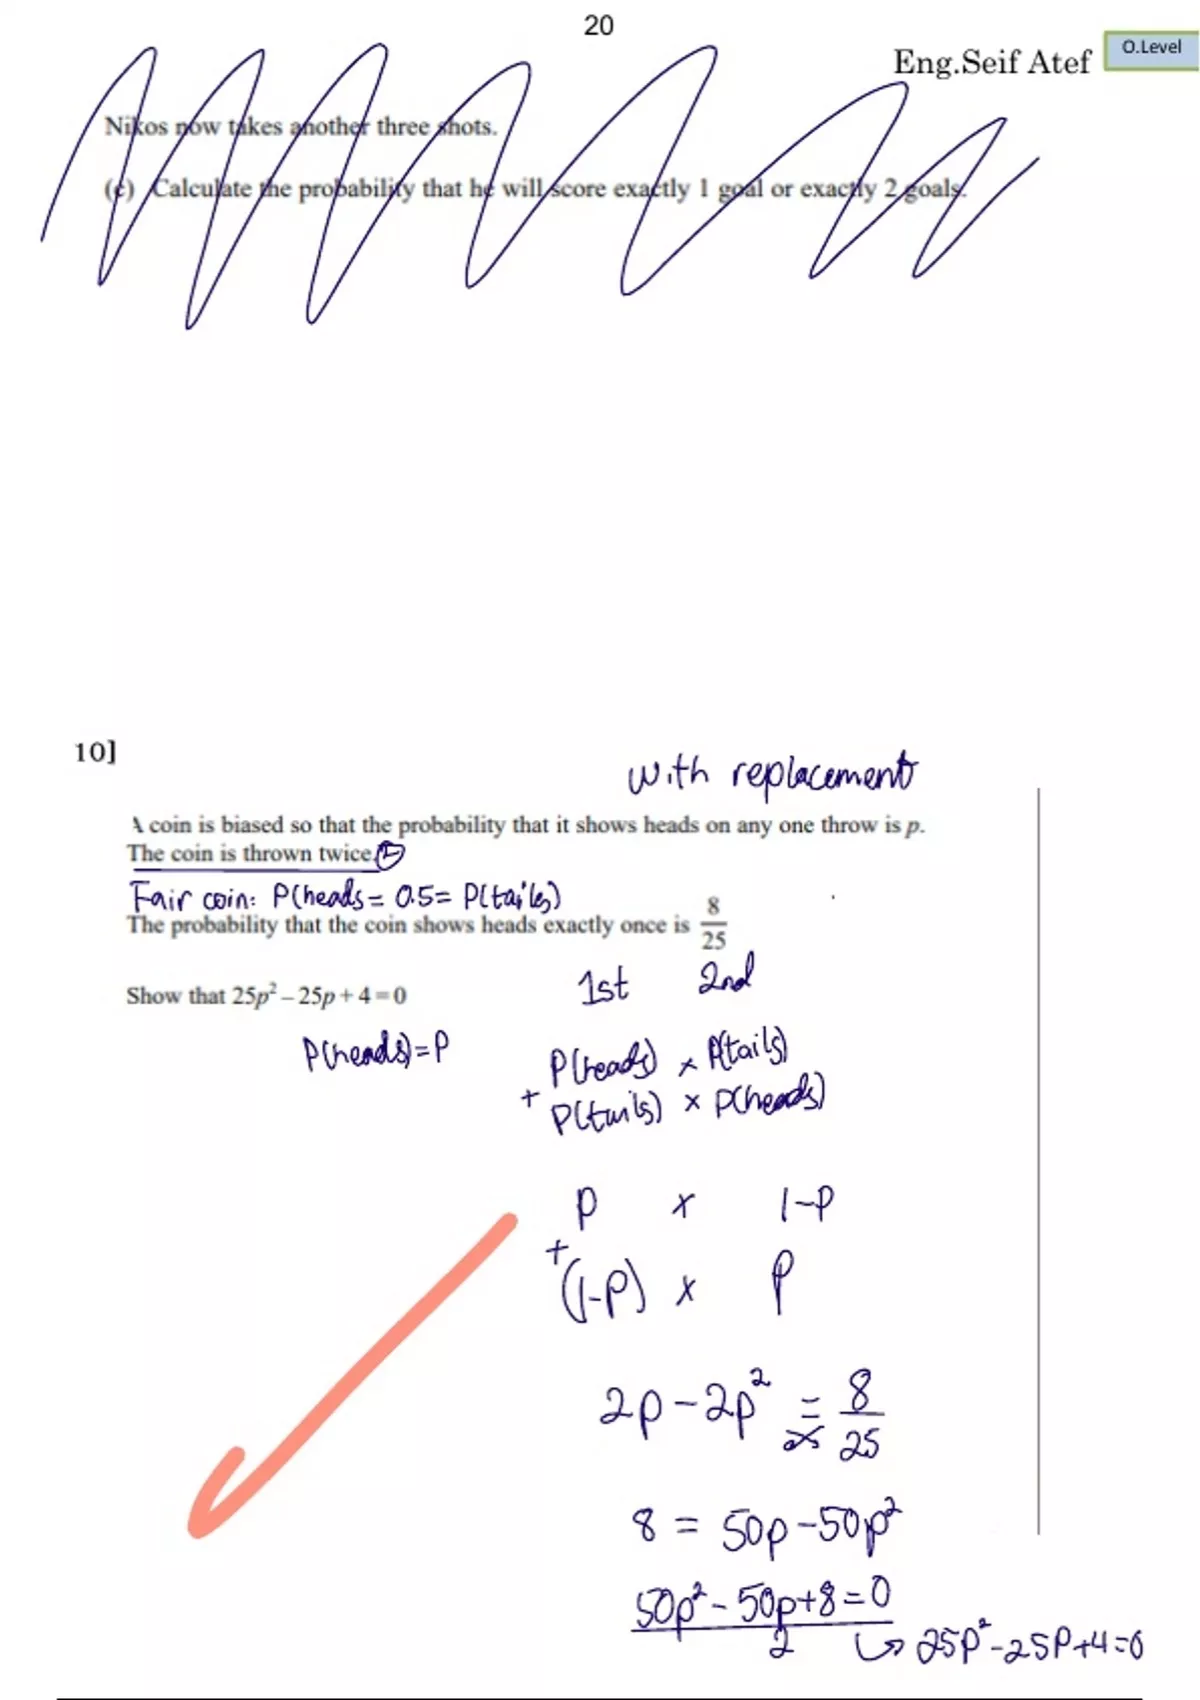 20
Eng.Seif Atef
O.Level
Nikos now takes another three shots.
(c) Calculate the probability that he will score exactly 1 goal or exactly 2 goals.
10]
with replacement
A coin is biased so that the probability that it shows heads on any one throw is p.
The coin is thrown twice.
Fair coin: P(heads = 0.5 = P(tails)
The probability that the coin shows heads exactly once is 8/25
1st 2nd
Show that 25p² – 25p + 4 = 0
P(heads) = P
P(heads) x P(tails)
+ P(tails) x P(heads)
P x 1-P
+ (1-P) x P
2p - 2p² = 8/25
8 = 50p - 50p²
50p² - 50p + 8 = 0
2 ↪ 25p² - 25p + 4 = 0